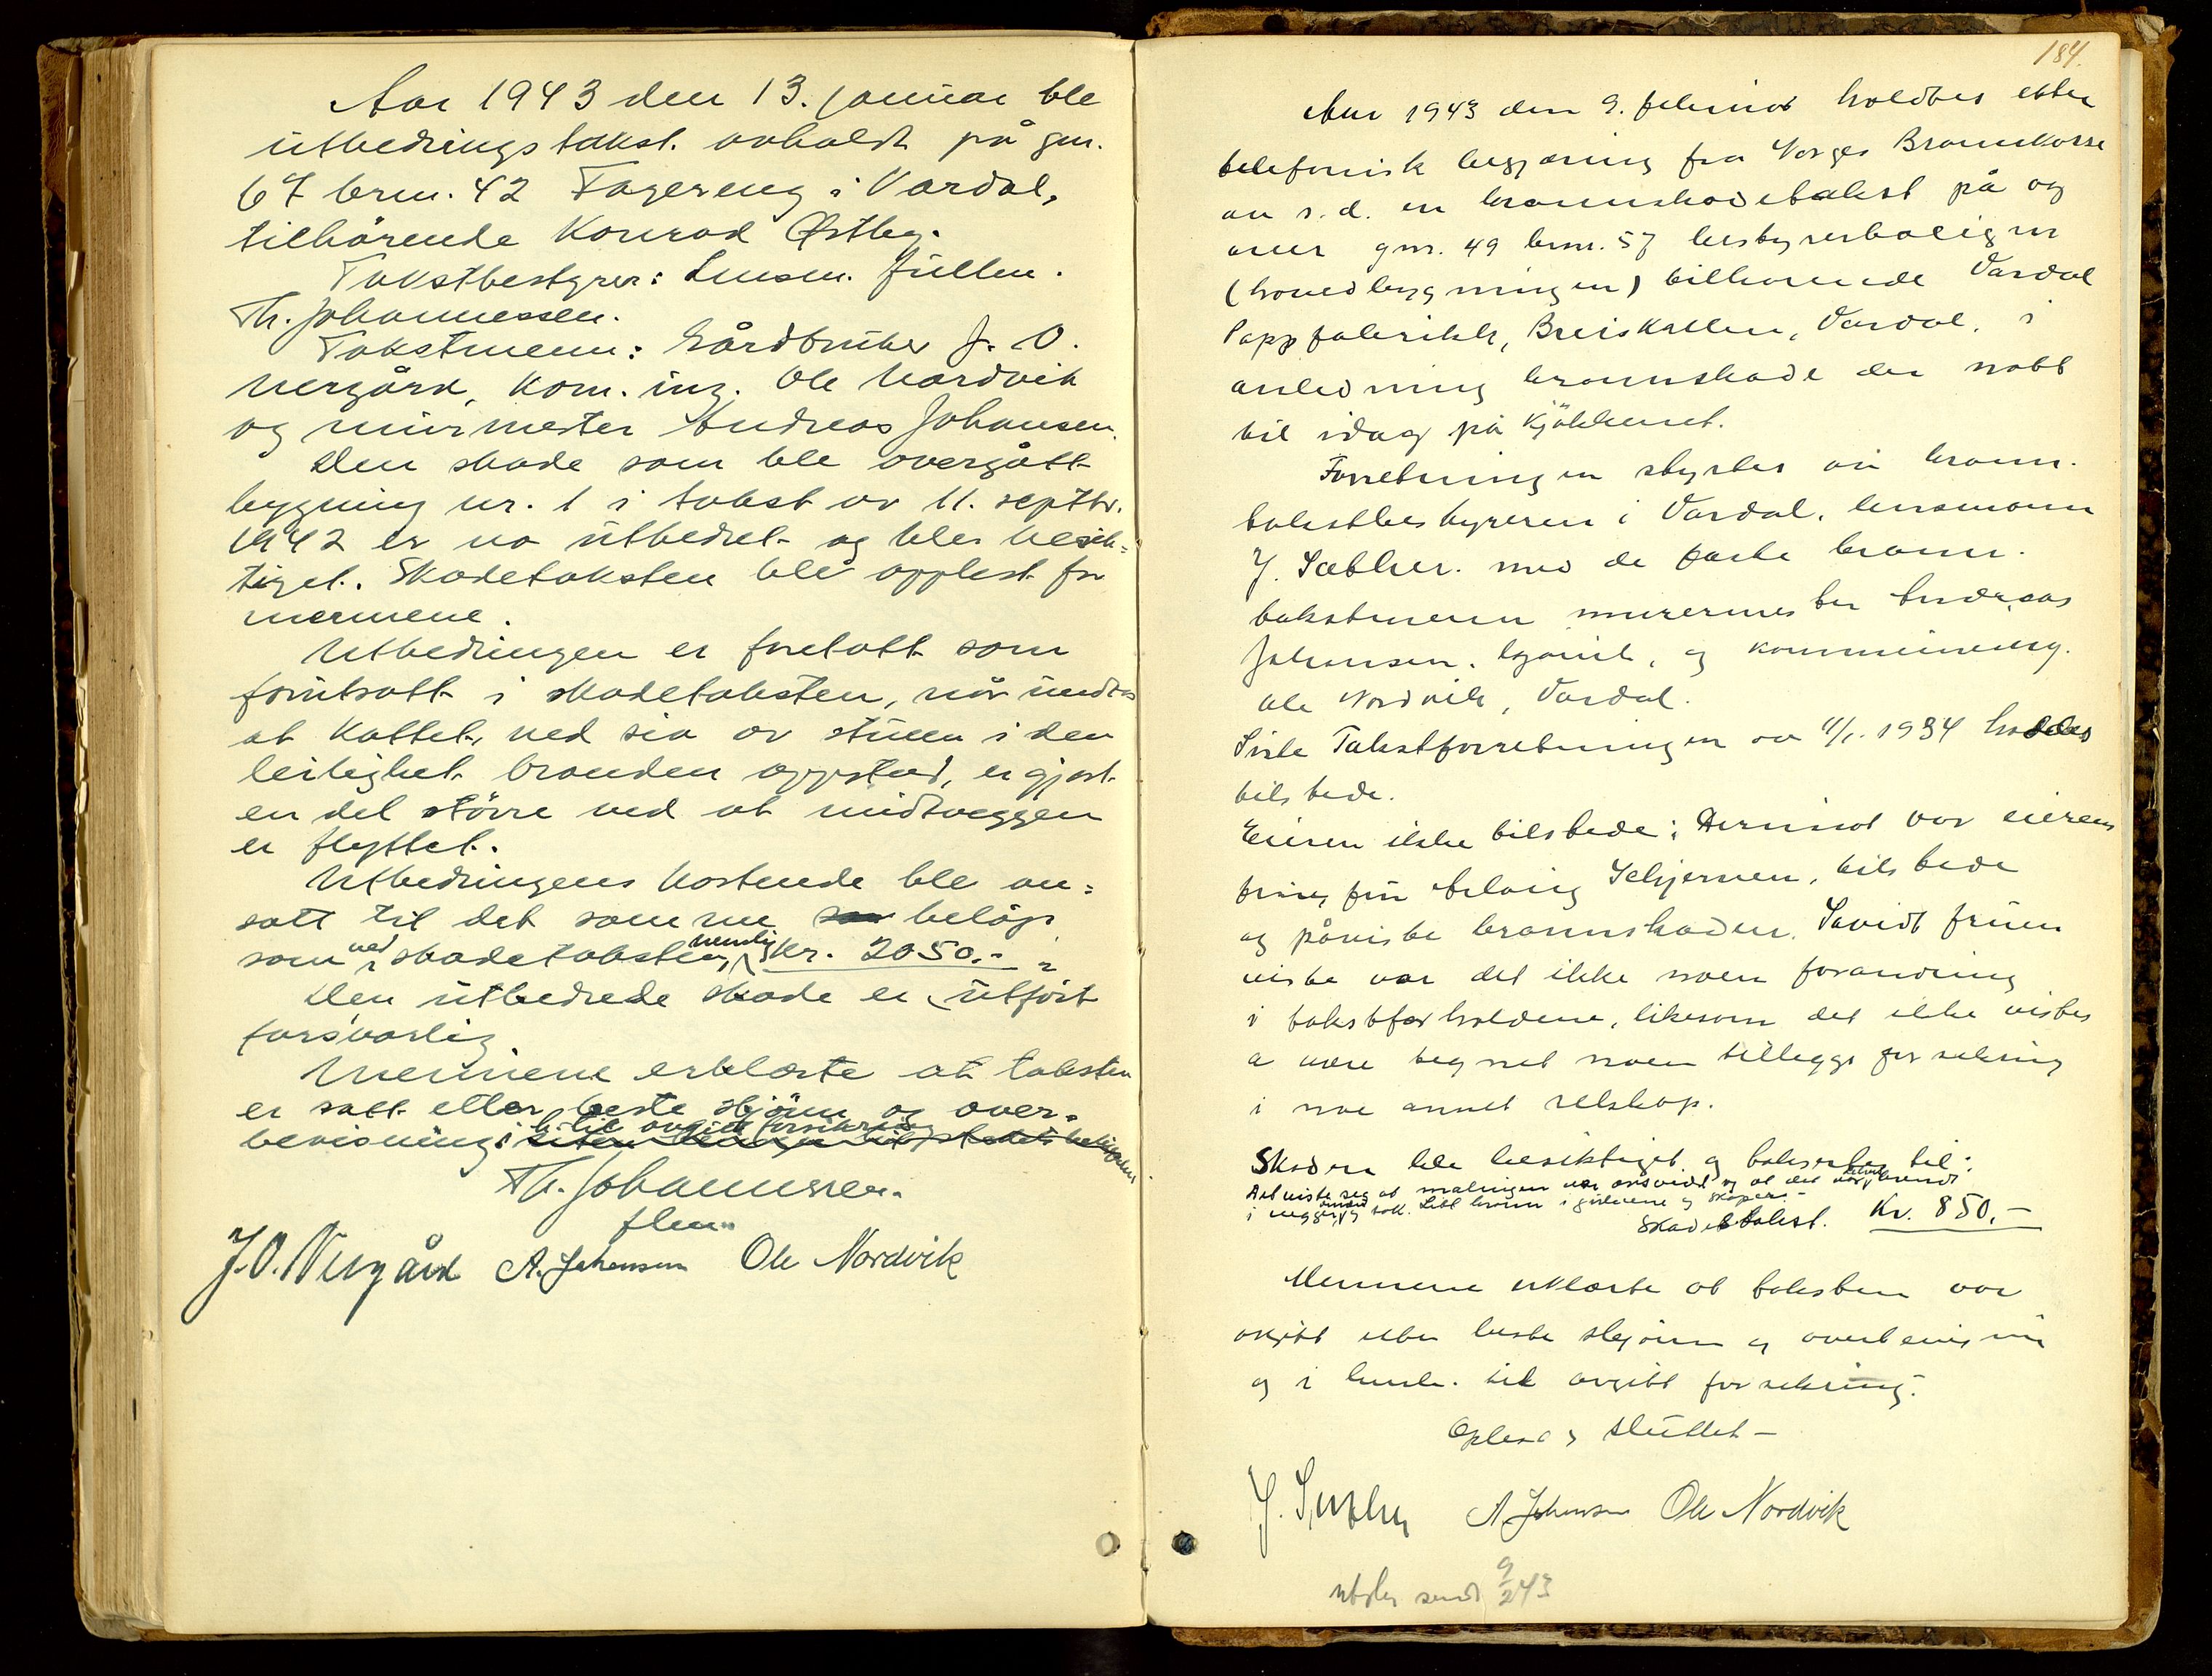 Aar 1943 den 13. januar ble
utbedringstakst. avholdt på gnr.
67 brn. 42 Fagereng i Vardal,
tilhörende Konrad Østby.
Takstbestyrer: Lensm. fullm.
Th. Johannessen.
Takstmenn: Gårdbruker J. O.
Nergård, Kom. ing. Ole Nordvik
og murmester Andreas Johansen.
Den skade som ble overgått
bygning nr. 1 i takst av 11. septbr.
1942 er no utbedret og blev besik-
tiget. Skadetaksten ble opplest for
mennene.
Utbedringen er foretatt som
forutsatt i skadetaksten, når undtas
at kottet, ved sia av stuen i den
leilighet branden oppstod, er gjort
en del större ved at midtveggen
er flyttet.
Utbedringens kostende ble an-
satt til det samme belöp
som ved skadetaksten, nemlig Kr. 2050.-
Den utbedrede skade er utfört
forsvarlig.
Mennene erklærte at taksten
er satt etter beste skjönn og over-
bevisning i h. til avgitt forsikring
Th. Johannessen.
flm.
J. O. Nergård A. Johansen Ole Nordvik
184.
Aar 1943 den 9. februar holdtes etter
telefonisk begjæring fra Norges Brannkasse
av s. d. en brannskadetakst på og
over gnr. 49 brnr. 57 bestyrerboligen
(hovedbygningen) tilhørende Vardal
Pappfabrikk, Breiskallen, Vardal, i
anledning brannskade der

til idag på Kjökkenet.
Forretningen styrtes av brann-
takstbestyreren i Vardal, lensmann
J. Sæther. med de faste brann-
takstmenn murermester Andreas
Johansen, Gjøvik, og kommuneing.
Ole Nordvik, Vardal.
Siste Takstforretningen av 11/1. 1934 haddes
tilstede.
Eieren ikke tilstede; Derimot var eierens
fru Schjerven, tilstede
og påviste brannskaden. Savidt fruen
viste var det ikke noen forandring
i takstforholdene, likesom det ikke vistes
a være tegnet noen tilleggsforsikring
i noe annet selskap.
Skaden ble besiktiget og takserter til:
Det viste seg at malingen var avsvidd og at det var brendt
i vegger, og tak. Litt brann i gulvene og skaper.-
Skadetakst. Kr. 850,-
Mennene erklærte at taksten var
avgitt etter beste skjönn og overbevisning
og i henh. til avgitt forsikring.
Oplest og sluttet -
J. Sæther A. Johansen Ole Nordvik
utskr. sendt 9/2 43